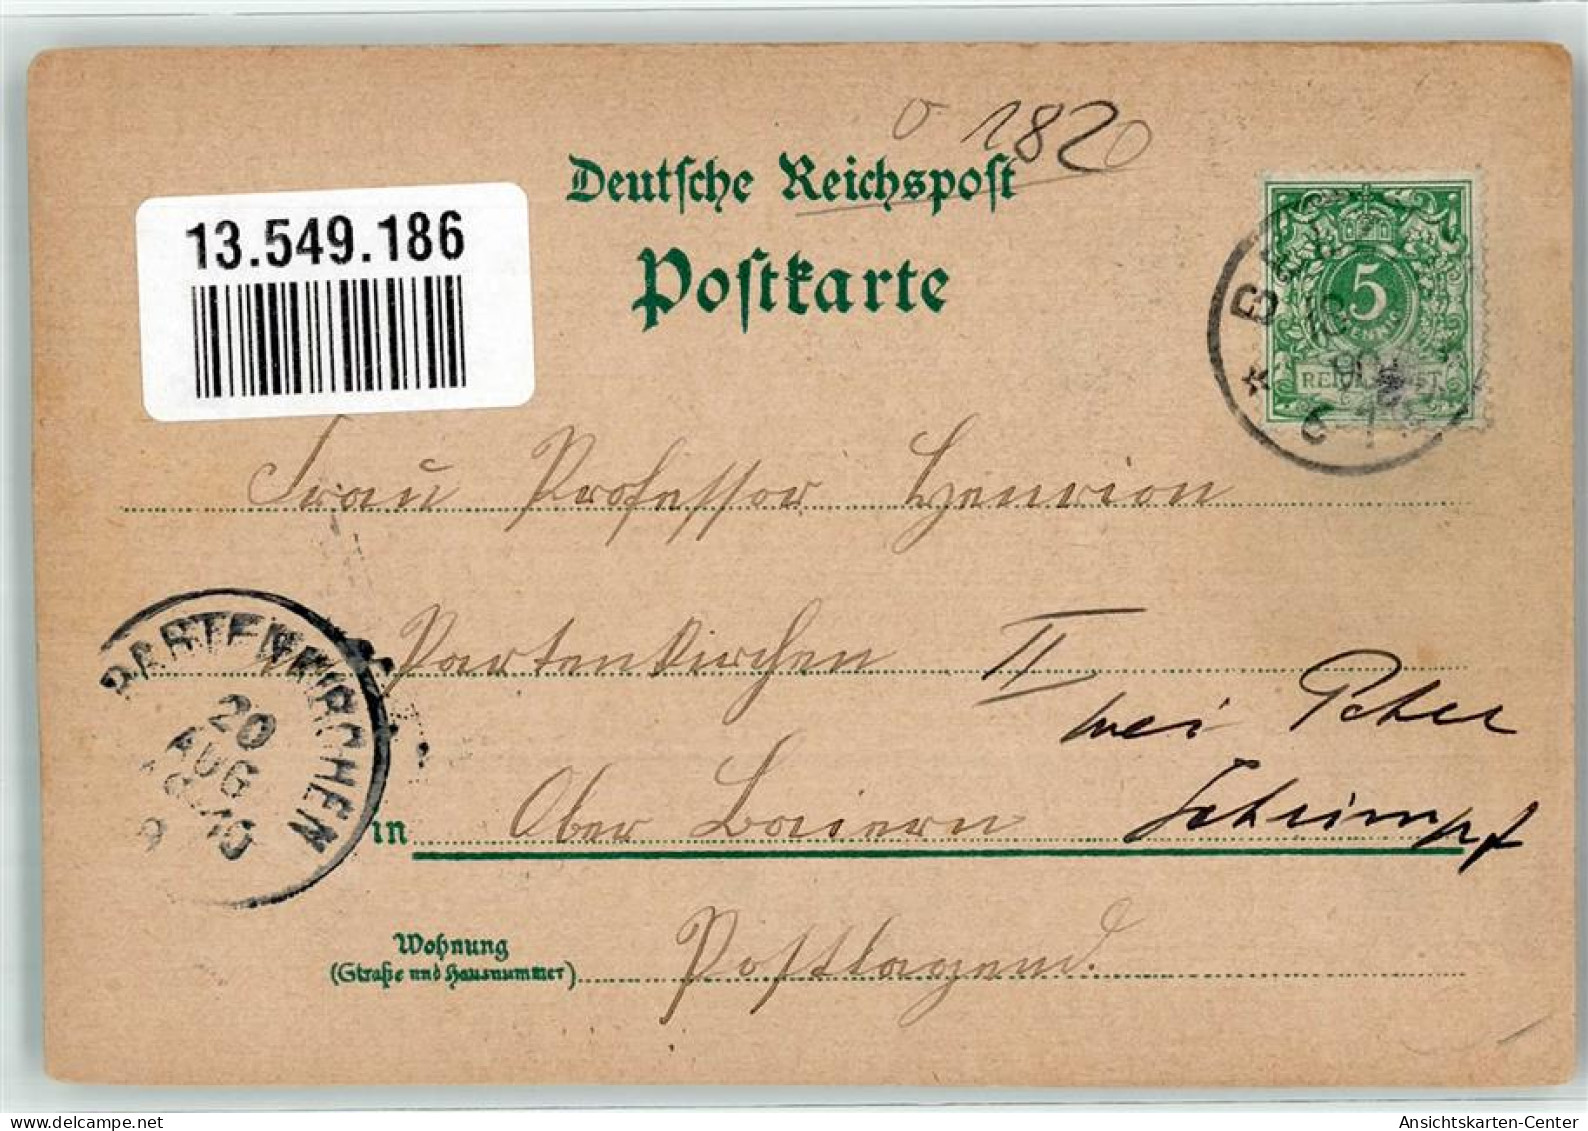 1820
Deutsche Reichspost
Postkarte
13.549.186
5
PFENNIG
REICHSPOST
Frau Professor Henrion
Partenkirchen II
bei Peter
in Ober Baiern Schrimpf
Wohnung
(Straße und Hausnummer)
Postlagend.
PARTENKIRCHEN
20
AUG
www.delcampe.net
Ansichtskarten-Center